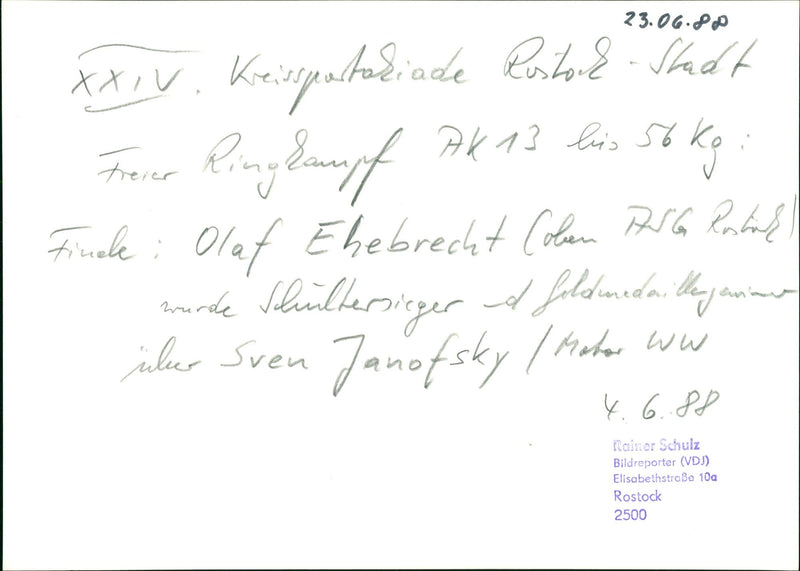 23.06.88
XXIV. Kreisspartakiade Rostock-Stadt
Freier Ringkampf AK 13 bis 56 Kg:
Finale: Olaf Ehebrecht (oben ASG Rostock)
wurde Schultersieger und Goldmedaillengewinner
über Sven Janofsky / Motor WW
4.6.88
Rainer Schulz
Bildreporter (VDJ)
Elisabethstraße 10a
Rostock
2500